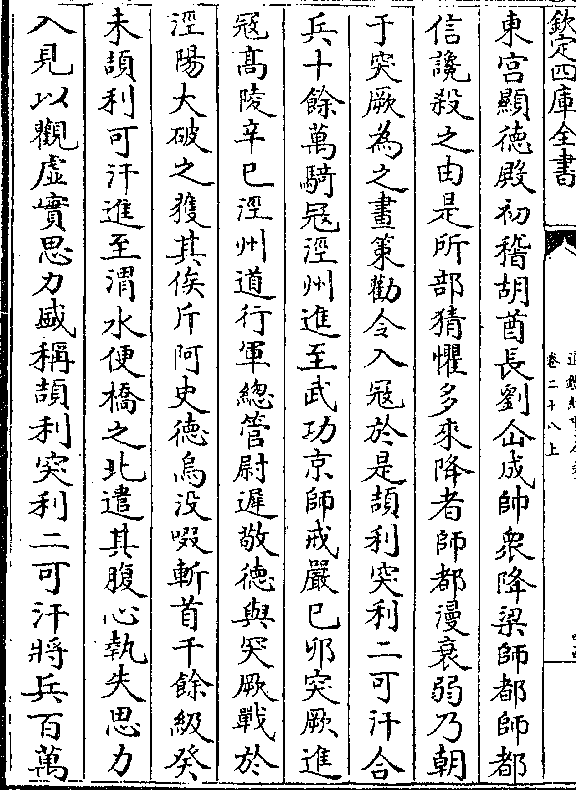 欽定四庫全書
卷二十八上
東宮顯德殿初稽胡酋長劉仚成帥衆降梁師都師都
信讒殺之由是所部猜懼多來降者師都漫衰弱乃朝
于突厥為之畫策勸令入冦於是頡利突利二可汗合
兵十餘萬騎冦涇州進至武功京師戒嚴己卯突厥進
冦髙陵辛巳涇州道行軍總管尉遲敬德與突厥戰於
涇陽大破之獲其俟斤阿史德烏没啜斬首千餘級癸
未頡利可汗進至渭水便橋之北遣其腹心執失思力
入見以觀虚實思力盛稱頡利突利二可汗將兵百萬